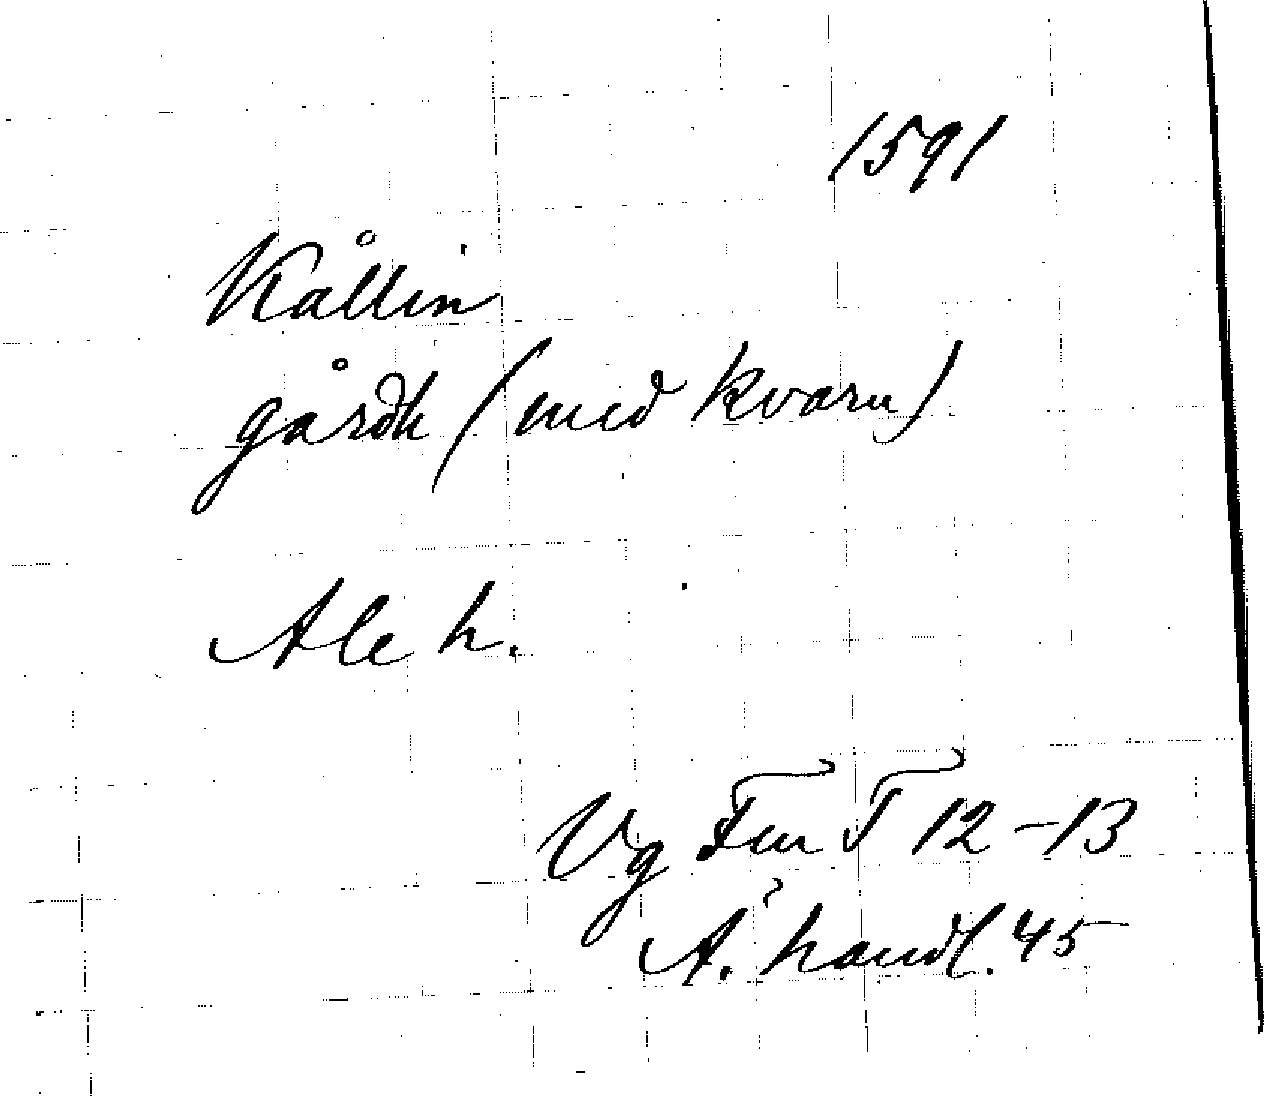 1591
Kållin
gårdh (med kvarn)
Ale h.
Vg Fm T 12-13
A. handl. 45